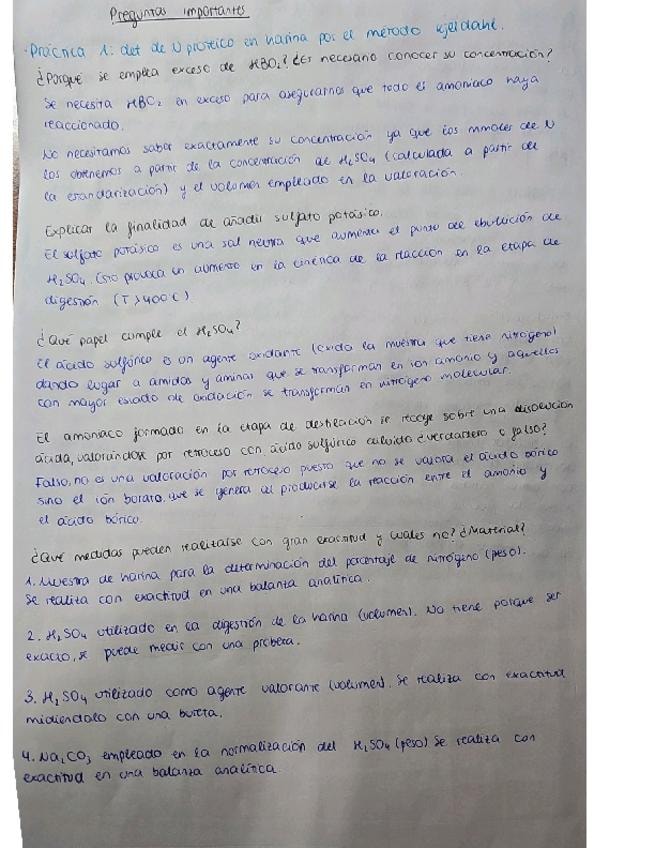 Preguntas importantes
· Práctica 1: det de N proteico en harina por el método kjeldahl.
¿Porqué se emplea exceso de HBO₂? ¿Es necesario conocer su concentración?
Se necesita HBO₂ en exceso para asegurarnos que todo el amoniaco haya
reaccionado.
No necesitamos saber exactamente su concentración ya que los mmoles de N
los obtenemos a partir de la concentración de H₂SO₄ (calculada a partir de
la estandarización) y el volumen empleado en la valoración.
Explicar la finalidad de añadir sulfato potásico.
El sulfato potásico es una sal neutra que aumenta el punto de ebullición de
H₂SO₄. Esto provoca un aumento en la cinética de la reacción en la etapa de
digestión (T > 400°C)
¿Qué papel cumple el H₂SO₄?
El ácido sulfúrico es un agente oxidante (oxida la muestra que tiene nitrógeno)
dando lugar a amidas y aminas que se transforman en ion amonio y aquellos
con mayor estado de oxidación se transforman en nitrógeno molecular.
El amoniaco formado en la etapa de destilación se recoge sobre una disolución
ácida, valorándose por retroceso con ácido sulfúrico ¿verdadero o falso?
Falso, no es una valoración por retroceso puesto que no se valora el ácido bórico
sino el ión borato, que se genera al producirse la reacción entre el amonio y
el ácido bórico.
¿Qué medidas pueden realizarse con gran exactitud y cuales no? ¿Material?
1. Muestra de harina para la determinación del porcentaje de nitrógeno (peso).
Se realiza con exactitud en una balanza analítica.
2. H₂SO₄ utilizado en la digestión de la harina (volumen). No tiene porque ser
exacto, se puede medir con una probeta.
3. H₂SO₄ utilizado como agente valorante (volumen). Se realiza con exactitud
midiendolo con una bureta.
4. Na₂CO₃ empleado en la normalización del H₂SO₄ (peso) se realiza con
exactitud en una balanza analítica.